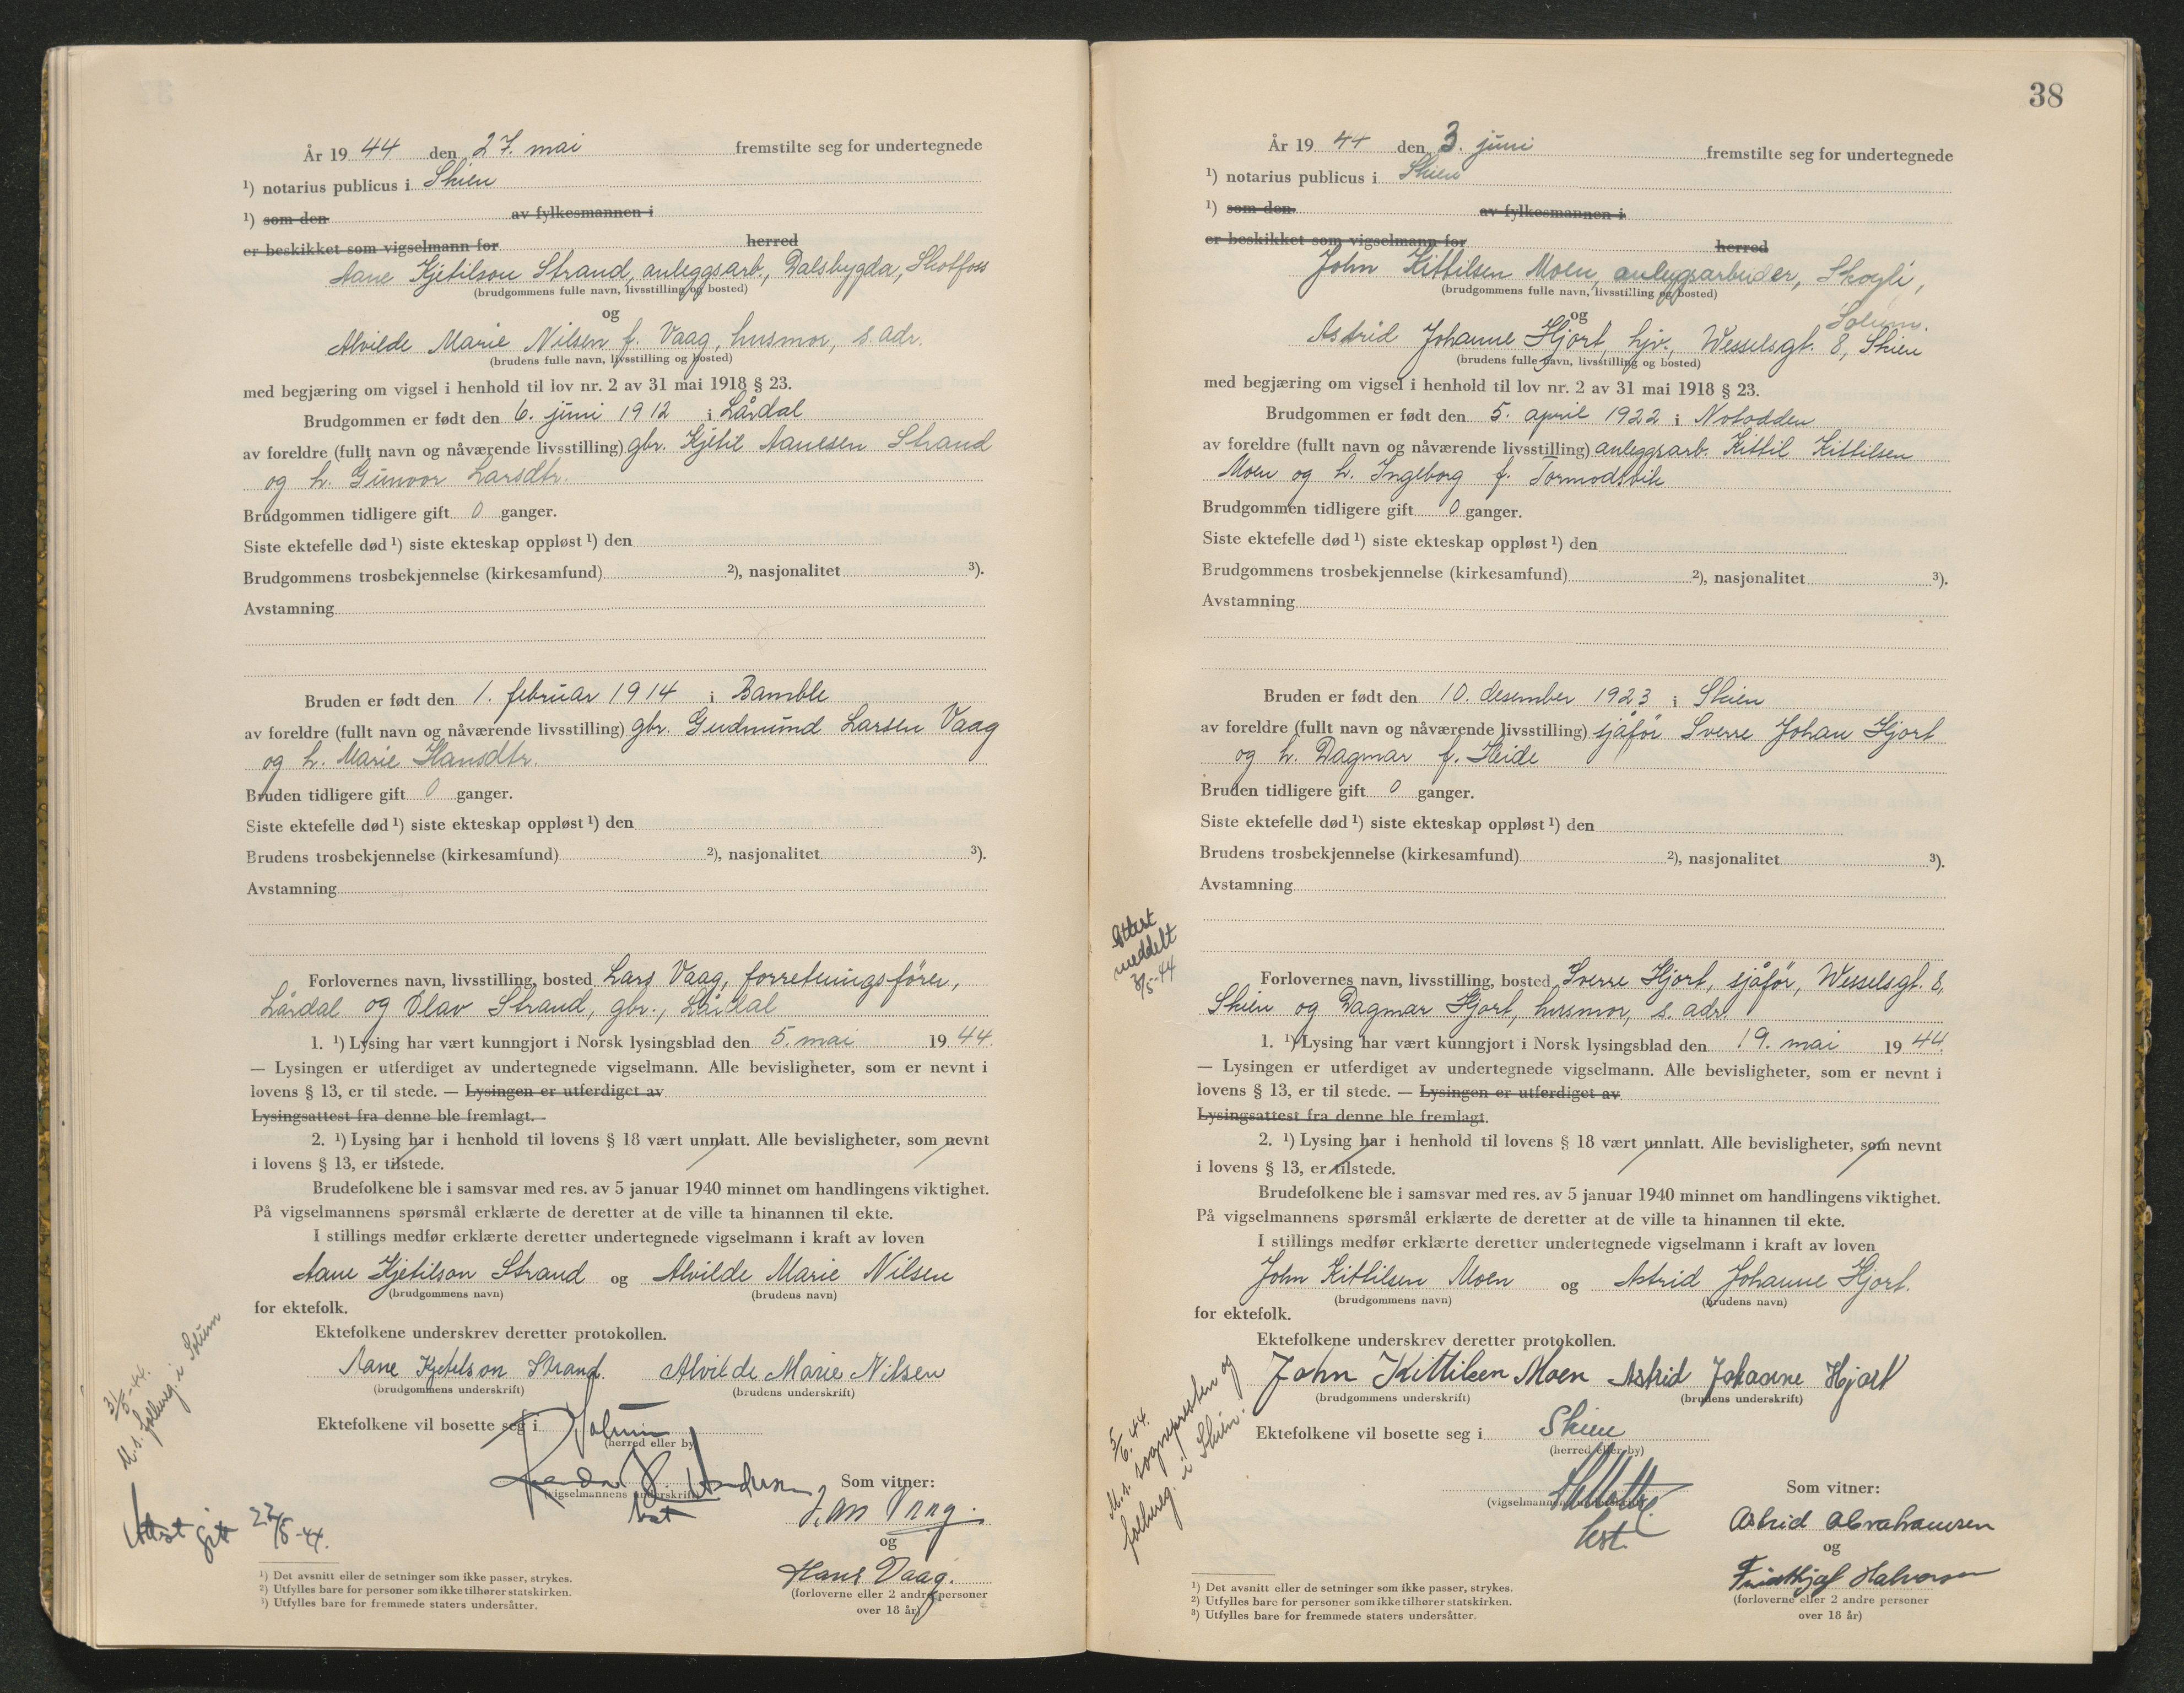 År 19 44 den 27. mai fremstilte seg for undertegnede
¹) notarius publicus i Skien
¹) som den av fylkesmannen i
er beskikket som vigselmann for herred
Aane Kjetilson Strand, anleggsarb., Dalsbygda, Skotfoss
(brudgommens fulle navn, livsstilling og bosted)
og
Alvilde Marie Nilsen f. Vaag, husmor, s. adr.
(brudens fulle navn, livsstilling og bosted)
med begjæring om vigsel i henhold til lov nr. 2 av 31 mai 1918 § 23.
Brudgommen er født den 6. juni 1912 i Lårdal
av foreldre (fullt navn og nåværende livsstilling) gbr. Kjetil Aanesen Strand
og h. Gunvor Larsdtr.
Brudgommen tidligere gift 0 ganger.
Siste ektefelle død ¹) siste ekteskap oppløst ¹) den
Brudgommens trosbekjennelse (kirkesamfund) ²), nasjonalitet ³).
Avstamning
Bruden er født den 1. februar 1914 i Bamble
av foreldre (fullt navn og nåværende livsstilling) gbr. Gudmund Larsen Vaag
og h. Marie Hansdtr.
Bruden tidligere gift 0 ganger.
Siste ektefelle død ¹) siste ekteskap oppløst ¹) den
Brudens trosbekjennelse (kirkesamfund) ²), nasjonalitet ³).
Avstamning
Forlovernes navn, livsstilling, bosted Lars Vaag, forretningsfører,
Lårdal og Olav Strand, gbr., Lårdal
1. ¹) Lysing har vært kunngjort i Norsk lysingsblad den 5. mai 19 44.
— Lysingen er utferdiget av undertegnede vigselmann. Alle bevisligheter, som er nevnt i
lovens § 13, er til stede. — Lysingen er utferdiget av
Lysingsattest fra denne ble fremlagt. -
2. ¹) Lysing har i henhold til lovens § 18 vært unnlatt. Alle bevisligheter, som nevnt
i lovens § 13, er tilstede.
Brudefolkene ble i samsvar med res. av 5 januar 1940 minnet om handlingens viktighet.
På vigselmannens spørsmål erklærte de deretter at de ville ta hinannen til ekte.
I stillings medfør erklærte deretter undertegnede vigselmann i kraft av loven
Aane Kjetilson Strand og Alvilde Marie Nilsen
(brudgommens navn) (brudens navn)
for ektefolk.
Ektefolkene underskrev deretter protokollen.
Aane Kjetelson Strand. Alvilde Marie Nilsen
(brudgommens underskrift) (brudens underskrift)
Ektefolkene vil bosette seg i Solum
(herred eller by)
Som vitner:
(vigselmannens underskrift)
og
Hans Vaag.
(forloverne eller 2 andre personer
over 18 år)
31/5-44.
M. s. folkereg. i Solum
Attest gitt 22/5-44.
¹) Det avsnitt eller de setninger som ikke passer, strykes.
²) Utfylles bare for personer som ikke tilhører statskirken.
³) Utfylles bare for fremmede staters undersåtter.
38
År 19 44 den 3. juni fremstilte seg for undertegnede
¹) notarius publicus i Skien
¹) som den av fylkesmannen i
er beskikket som vigselmann for herred
John Kittilsen Moen, anleggsarbeider, Skogli,
(brudgommens fulle navn, livsstilling og bosted)
Solum.
og
Astrid Johanne Hjort, hjv., Wesselsgt. 8, Skien
(brudens fulle navn, livsstilling og bosted)
med begjæring om vigsel i henhold til lov nr. 2 av 31 mai 1918 § 23.
Brudgommen er født den 5. april 1922 i Notodden
av foreldre (fullt navn og nåværende livsstilling) anleggsarb. Kittil Kittilsen
Moen og h. Ingeborg f. Tormodsvik
Brudgommen tidligere gift 0 ganger.
Siste ektefelle død ¹) siste ekteskap oppløst ¹) den
Brudgommens trosbekjennelse (kirkesamfund) ²), nasjonalitet ³).
Avstamning
Bruden er født den 10. desember 1923 i Skien
av foreldre (fullt navn og nåværende livsstilling) sjåfør Sverre Johan Hjort
og h. Dagmar f. Heide
Bruden tidligere gift 0 ganger.
Siste ektefelle død ¹) siste ekteskap oppløst ¹) den
Brudens trosbekjennelse (kirkesamfund) ²), nasjonalitet ³).
Avstamning
Attest
meddelt
3/5-44
Forlovernes navn, livsstilling, bosted Sverre Hjort, sjåfør, Wesselsgt. 8,
Skien og Dagmar Hjort, husmor, s. adr.
1. ¹) Lysing har vært kunngjort i Norsk lysingsblad den 19. mai 19 44.
— Lysingen er utferdiget av undertegnede vigselmann. Alle bevisligheter, som er nevnt i
lovens § 13, er til stede. — Lysingen er utferdiget av
Lysingsattest fra denne ble fremlagt.
2. ¹) Lysing har i henhold til lovens § 18 vært unnlatt. Alle bevisligheter, som nevnt
i lovens § 13, er tilstede.
Brudefolkene ble i samsvar med res. av 5 januar 1940 minnet om handlingens viktighet.
På vigselmannens spørsmål erklærte de deretter at de ville ta hinannen til ekte.
I stillings medfør erklærte deretter undertegnede vigselmann i kraft av loven
John Kittilsen Moen og Astrid Johanne Hjort.
(brudgommens navn) (brudens navn)
for ektefolk.
Ektefolkene underskrev deretter protokollen.
John Kittilsen Moen Astrid Johanne Hjort
(brudgommens underskrift) (brudens underskrift)
Ektefolkene vil bosette seg i Skien
(herred eller by)
Som vitner:
(vigselmannens underskrift)
Astrid Abrahamsen
og
Fridthjof Halvorsen
(forloverne eller 2 andre personer
over 18 år)
5/6. 44.
M. s. sognepresten og
folkereg. i Skien.
¹) Det avsnitt eller de setninger som ikke passer, strykes.
²) Utfylles bare for personer som ikke tilhører statskirken.
³) Utfylles bare for fremmede staters undersåtter.